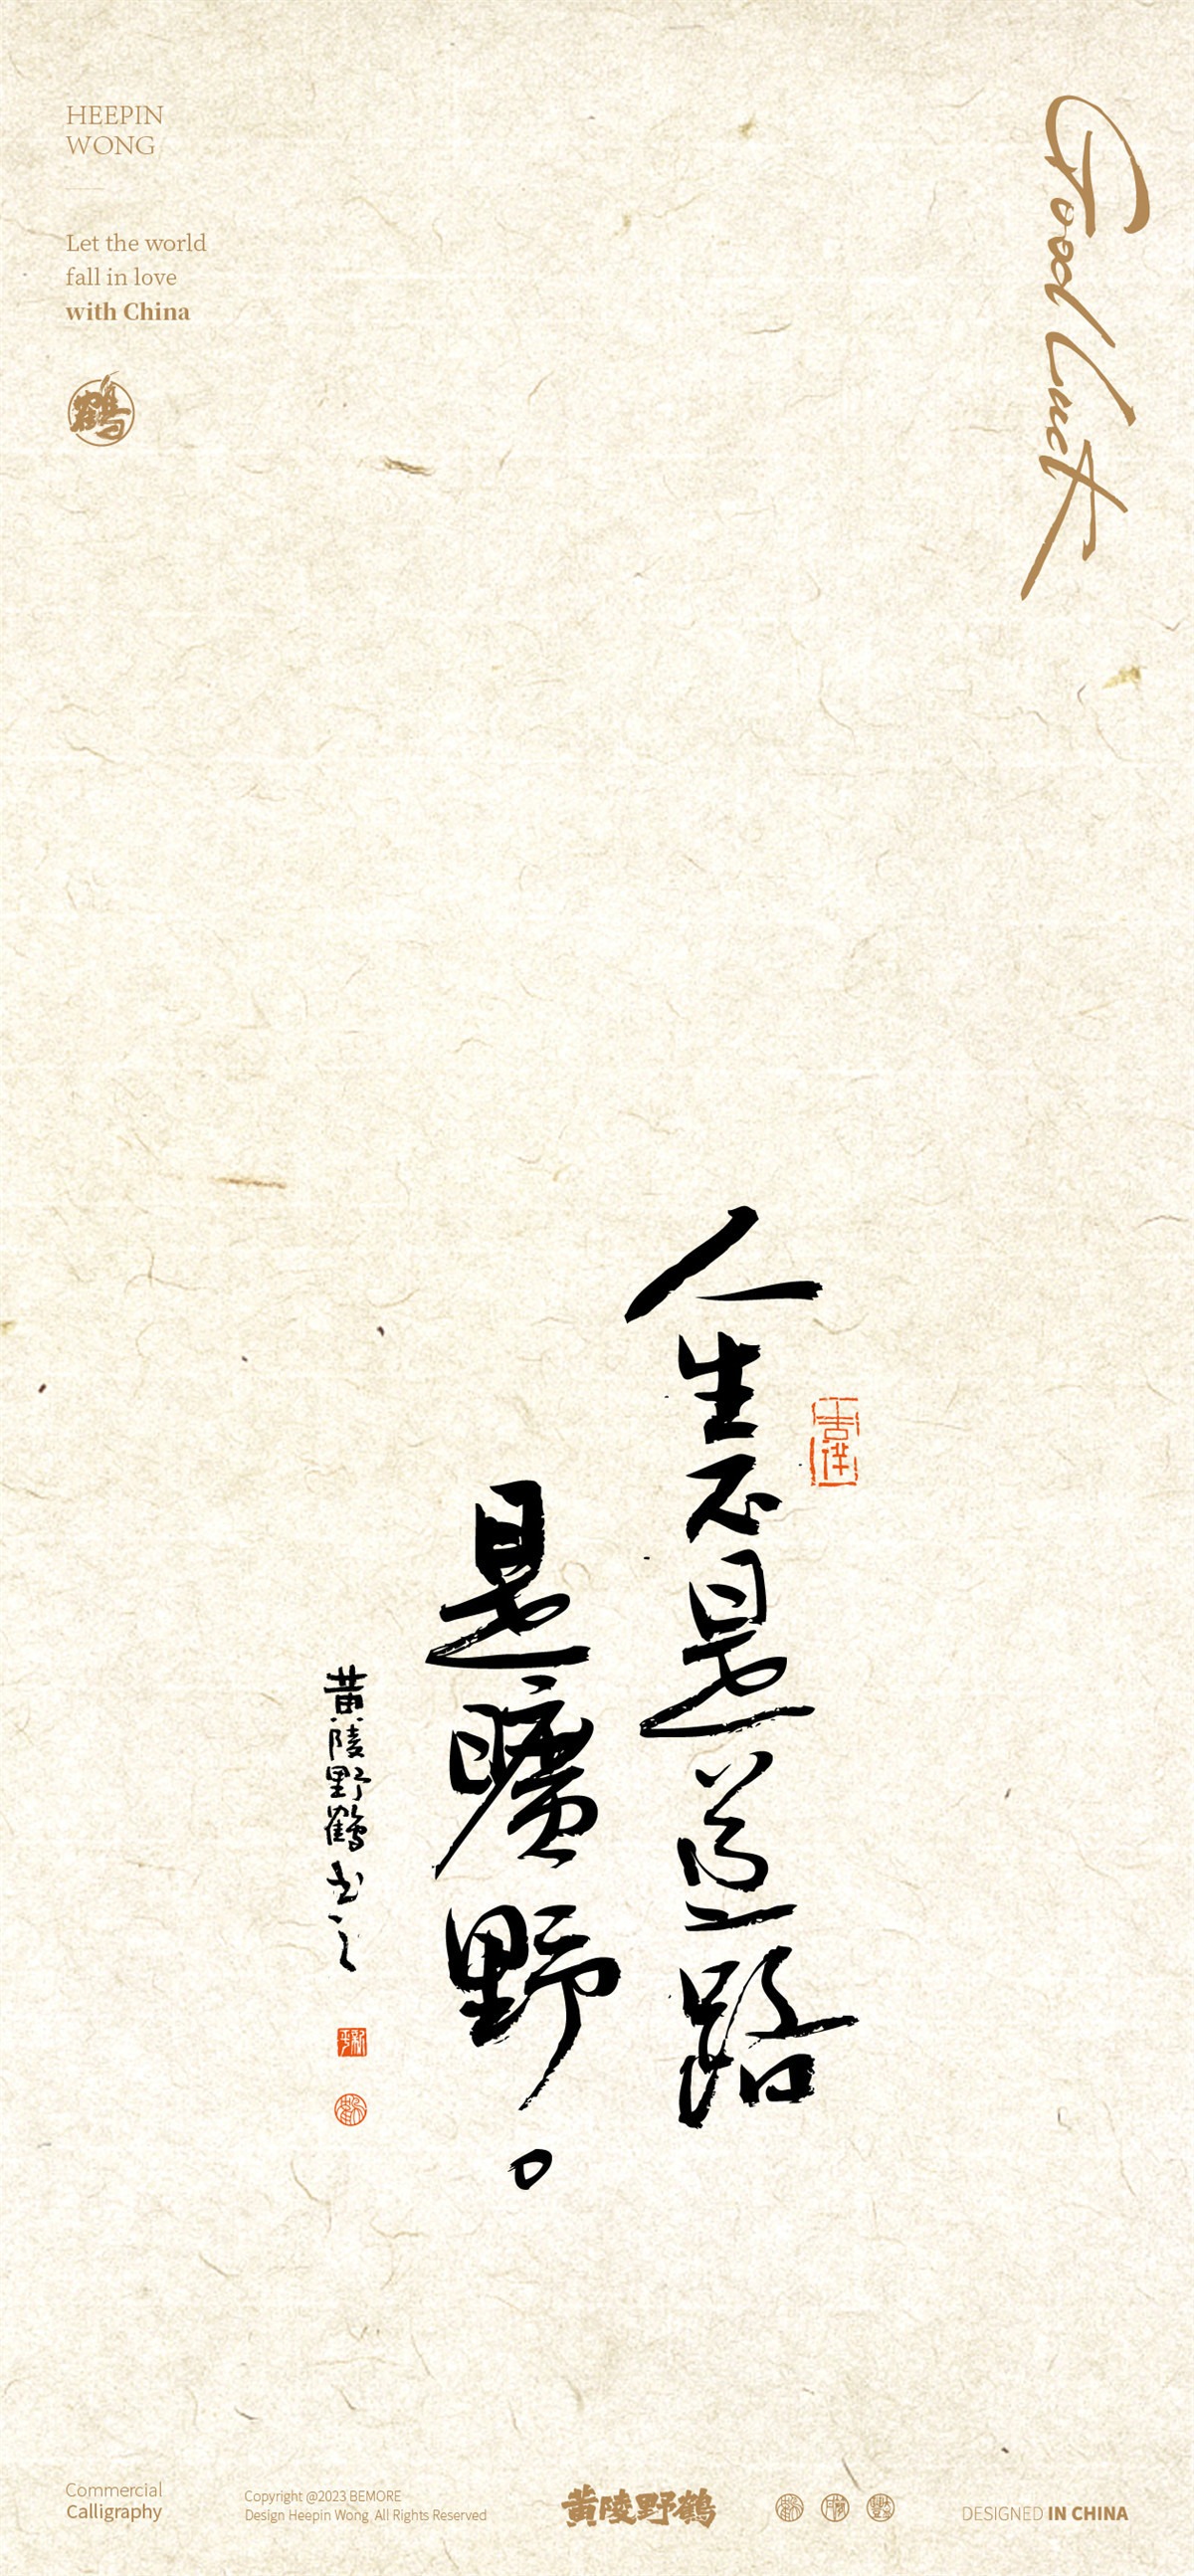 HEEPIN
WONG
Let the world
fall in love
with China
鶴
Good luck
人生不是道路
是曠野。
黄陵野鶴书之
吉祥
Commercial
Calligraphy
Copyright @2023 BEMORE
Design Heepin Wong All Rights Reserved
黄陵野鶴
DESIGNED IN CHINA